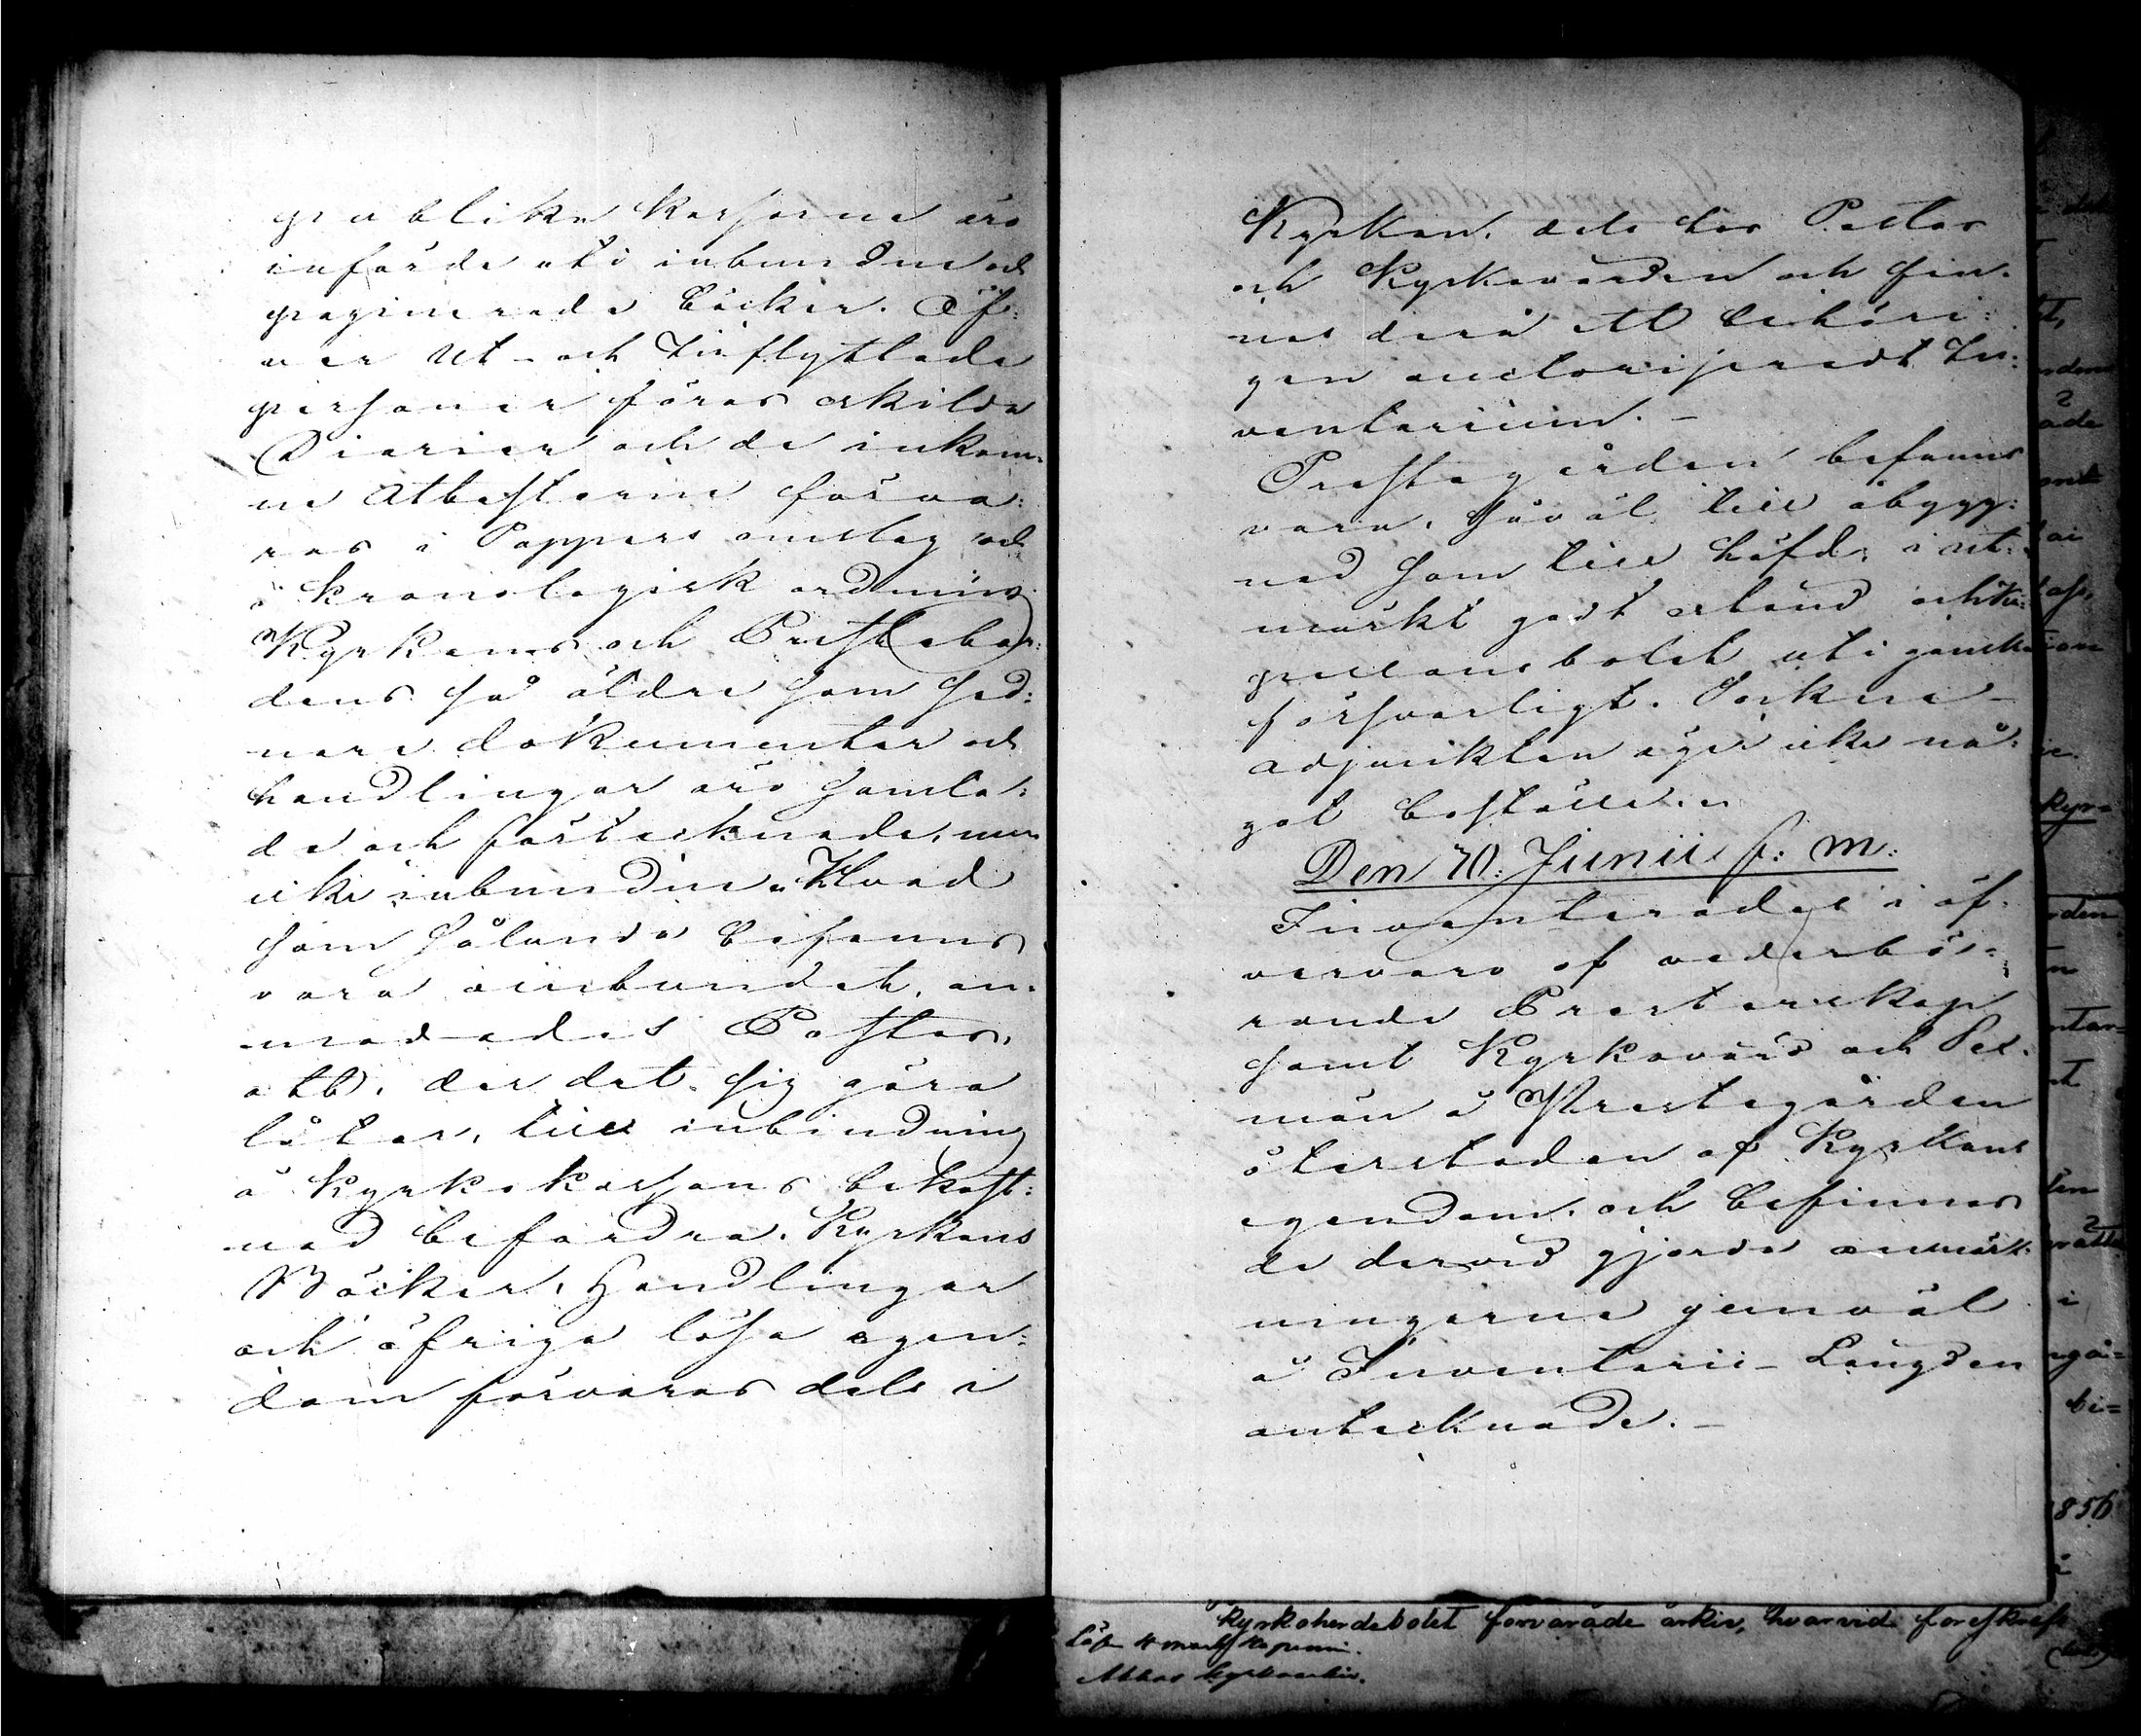 publika kassorne äro
införde uti inbundne och
paginerade böcker. Öf-
ver Ut- och Inflyttade
personer föras skilda
Diarier och de inkom-
ne Attesterne förva-
ras i Pappers omslag och
i kronologisk ordning.
Kyrkans och Prestebor-
dens så äldre som sed-
nare dokumenter och
handlingar äro samla-
de och förtecknade, men
icke inbundne. Hvad
som sålunda befanns
vara oinbundet, an-
modades Pastor,
att, der det sig göra
låter, till inbindning
å Kyrkokassans bekost-
nad befordra. Kyrkans
Böcker, Handlingar
och öfriga lösa egen-
dom förvaras dels i
Kyrkan, dels hos Pastor
och Kyrkovärden och fin-
nes derå ett behöri-
gen auctoriseradt In-
ventarium. —
Prestegården befanns
vara, såväl till åbygg-
nad som till häfd, i ut-
märkt godt stånd och Ka-
pellansbolet uti ganska
försvarligt. Sockne-
adjunkten eger icke nå-
got boställe.
Den 10. Junii f. m.
Inventerades i öf-
vervaro af vederbö-
rande Presterskap
samt Kyrkovärd och Sex-
män å Prestegården
återstoden af Kyrkans
egendom, och befinnas
de dervid gjorda anmärk-
ningarne jemväl
å Inventarii-Längden
antecknade. —
kyrkoherdebolet förvarade arkiv, hvarvid föreskrefs
1856